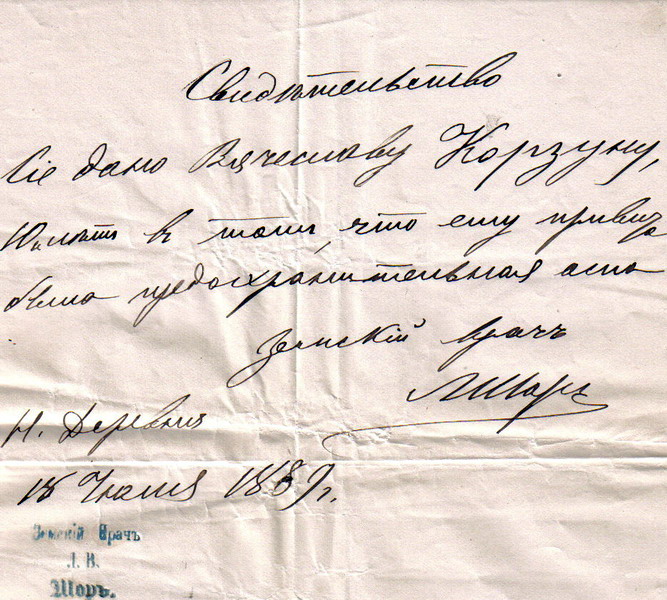 Свидѣтельство
Сіе дано Вячеславу Корзуну,
10 лѣтъ въ томъ, что ему привита
была предохранительная оспа
Земскій врачъ
Л Шоръ
Н. Деревня
18 Іюля 1889 г.
Земскій Врачъ
Л. В.
Шоръ.